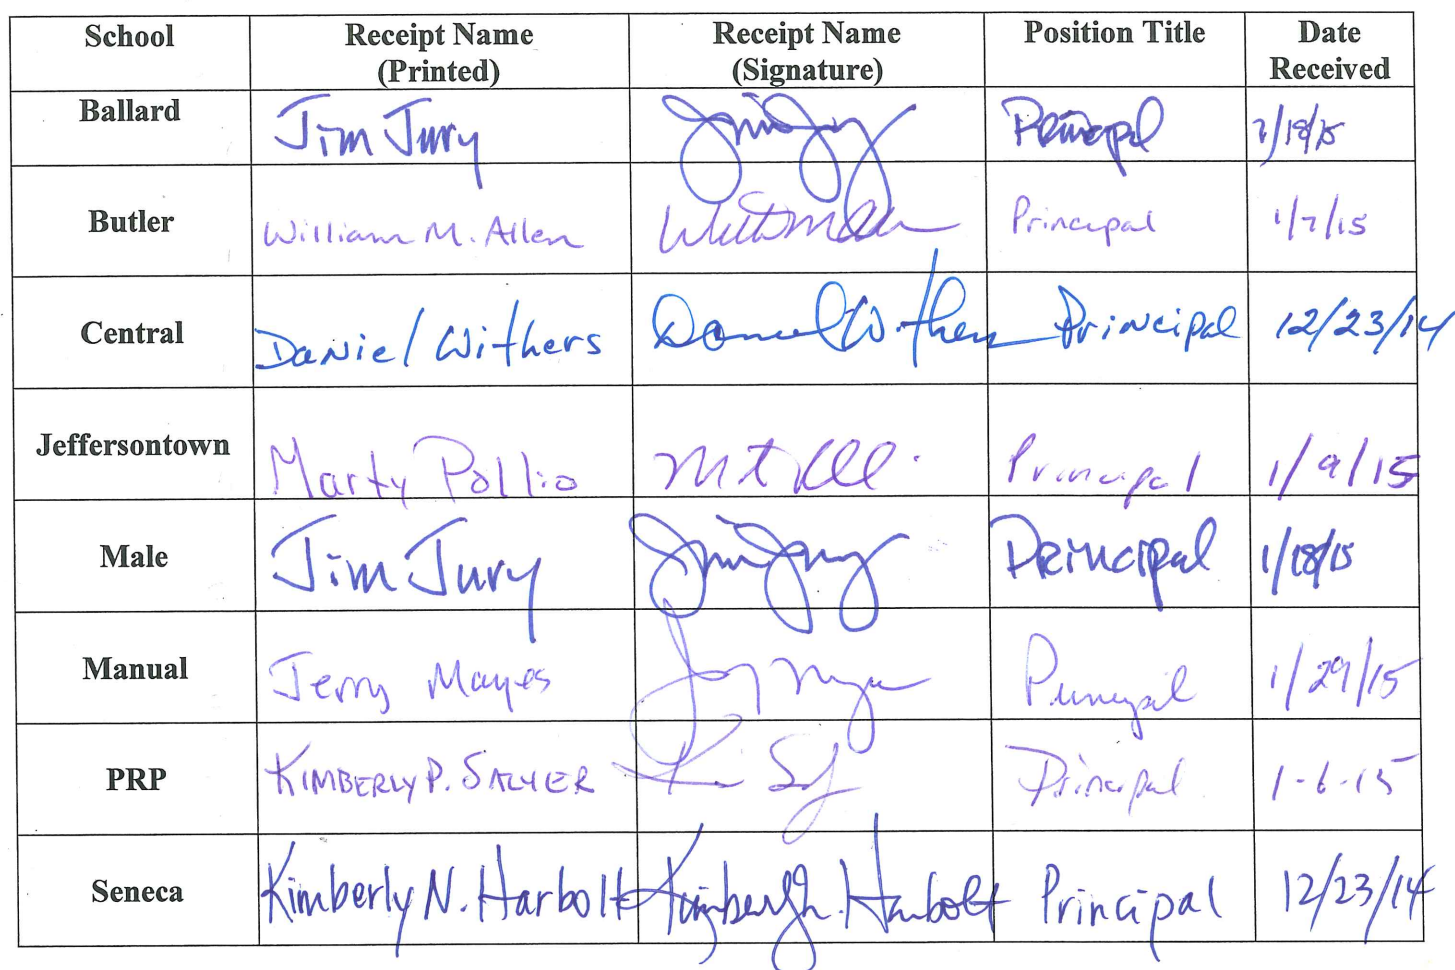 School Receipt Name (Printed) Receipt Name (Signature) Position Title Date Received
Ballard Jim Jury Jim Jury Principal 1/18/15
Butler William M. Allen Principal 1/7/15
Central Daniel Withers Daniel Withers Principal 12/23/14
Jeffersontown Marty Pollio Principal 1/9/15
Male Jim Jury Jim Jury Principal 1/18/15
Manual Jerry Mayes Principal 1/29/15
PRP KIMBERLY P. SALYER Principal 1-6-15
Seneca Kimberly N. Harbolt Kimberly N. Harbolt Principal 12/23/14